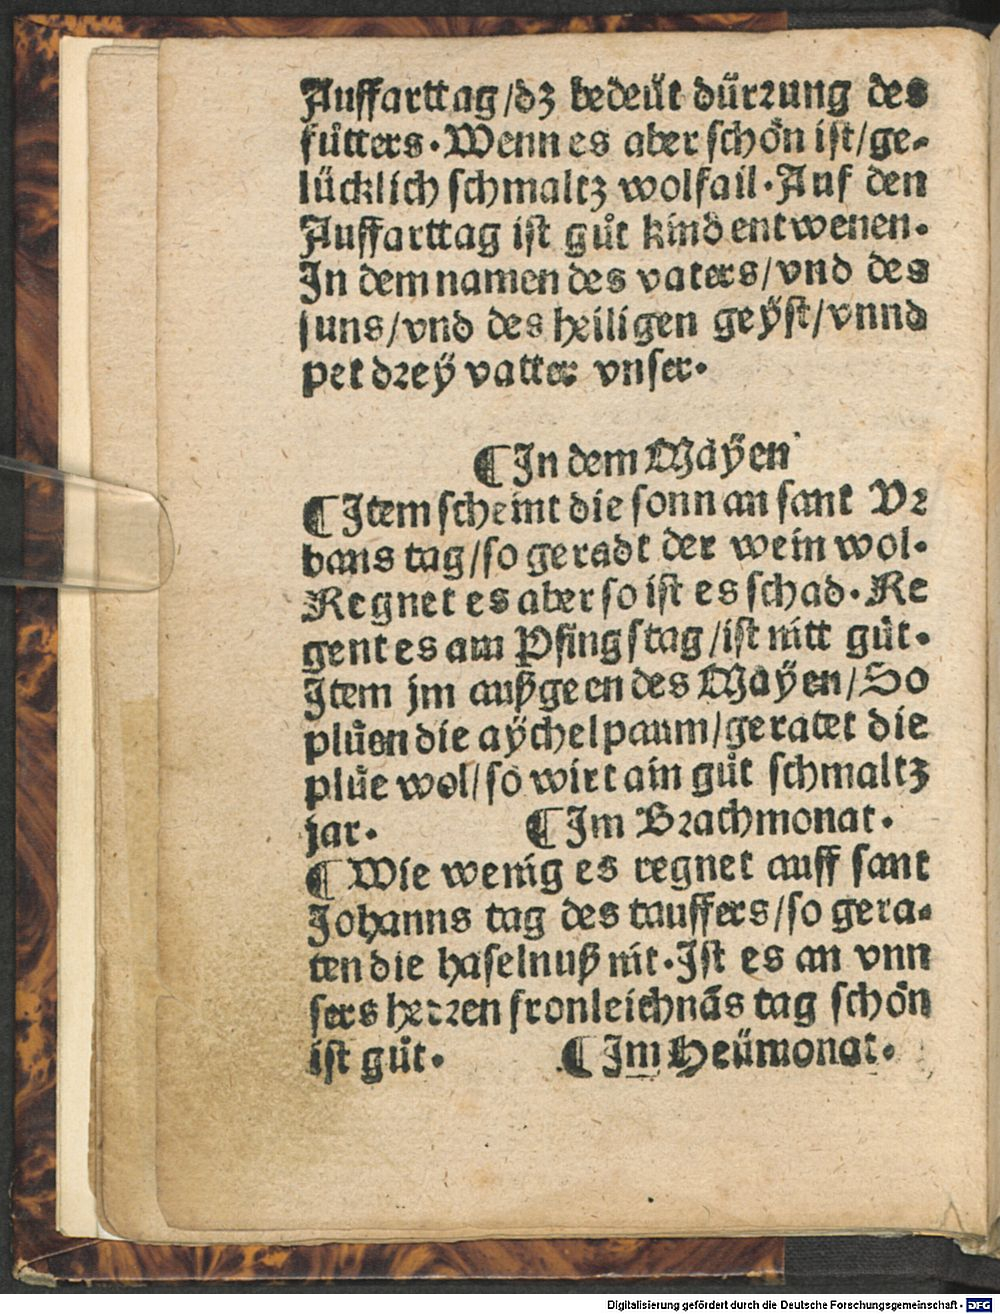 Auffarttag/dz bedeüt dürzung des
fůtters. Wenn es aber schön ist/ge-
lücklich schmaltz wolfail. Auf den
Auffarttag ist gůt kind entwenen.
In dem namen des vaters/vnd des
suns/vnd des heiligen geÿst/vnnd
pet dreÿ vatter vnser.
¶ In dem Mäÿen
¶ Item scheint die sonn an sant Vr
bans tag/so geradt der wein wol.
Regnet es aber so ist es schad. Re
gent es am Pfingstag/ist nitt gůt.
Item jm außgeen des Mäÿen/So
plůen die aÿchelpaum/geratet die
plůe wol/so wirt ain gůt schmaltz
jar. ¶ Im Brachmonat.
¶ Wie wenig es regnet auff sant
Johanns tag des tauffers/so gera-
ten die haselnuß nit. Ist es an vnn
sers herren fronleichnãs tag schön
ist gůt. ¶ Im Heümonat.
Digitalisierung gefördert durch die Deutsche Forschungsgemeinschaft - DFG